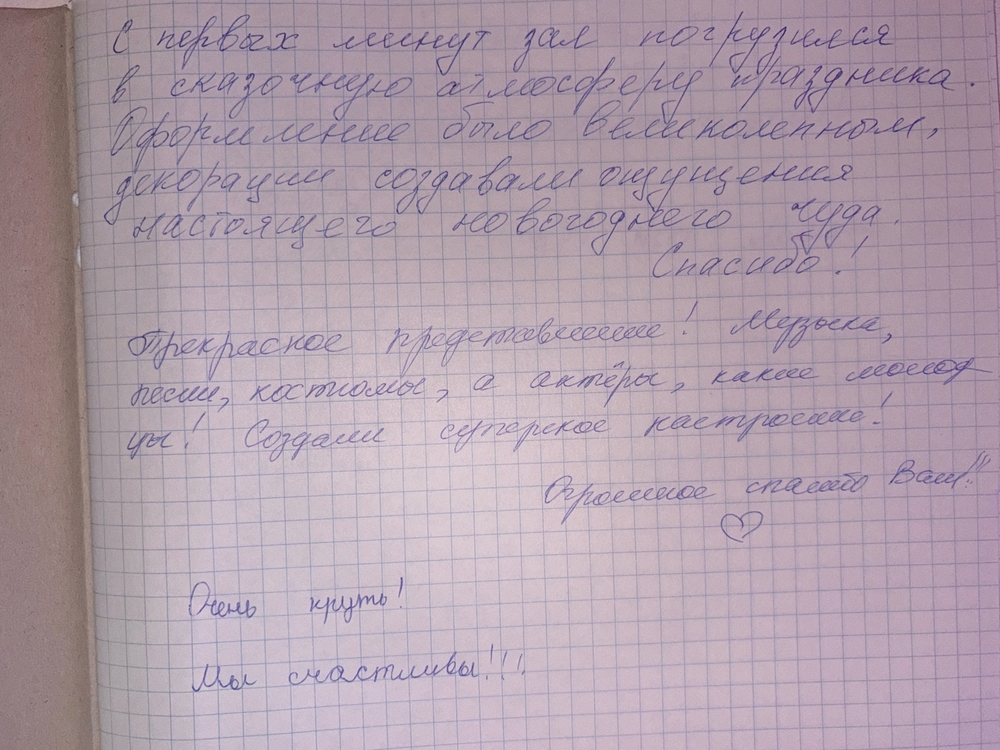 С первых минут зал погрузился
в сказочную атмосферу праздника.
Оформление было великолепным,
декорации создавали ощущения
настоящего новогоднего чуда.
Спасибо!
Прекрасное представление! Музыка,
песни, костюмы, а актёры, какие молод
цы! Создали суперское настроение!
Огромное спасибо Вам!!!
Очень круть!
Мы счастливы!!!